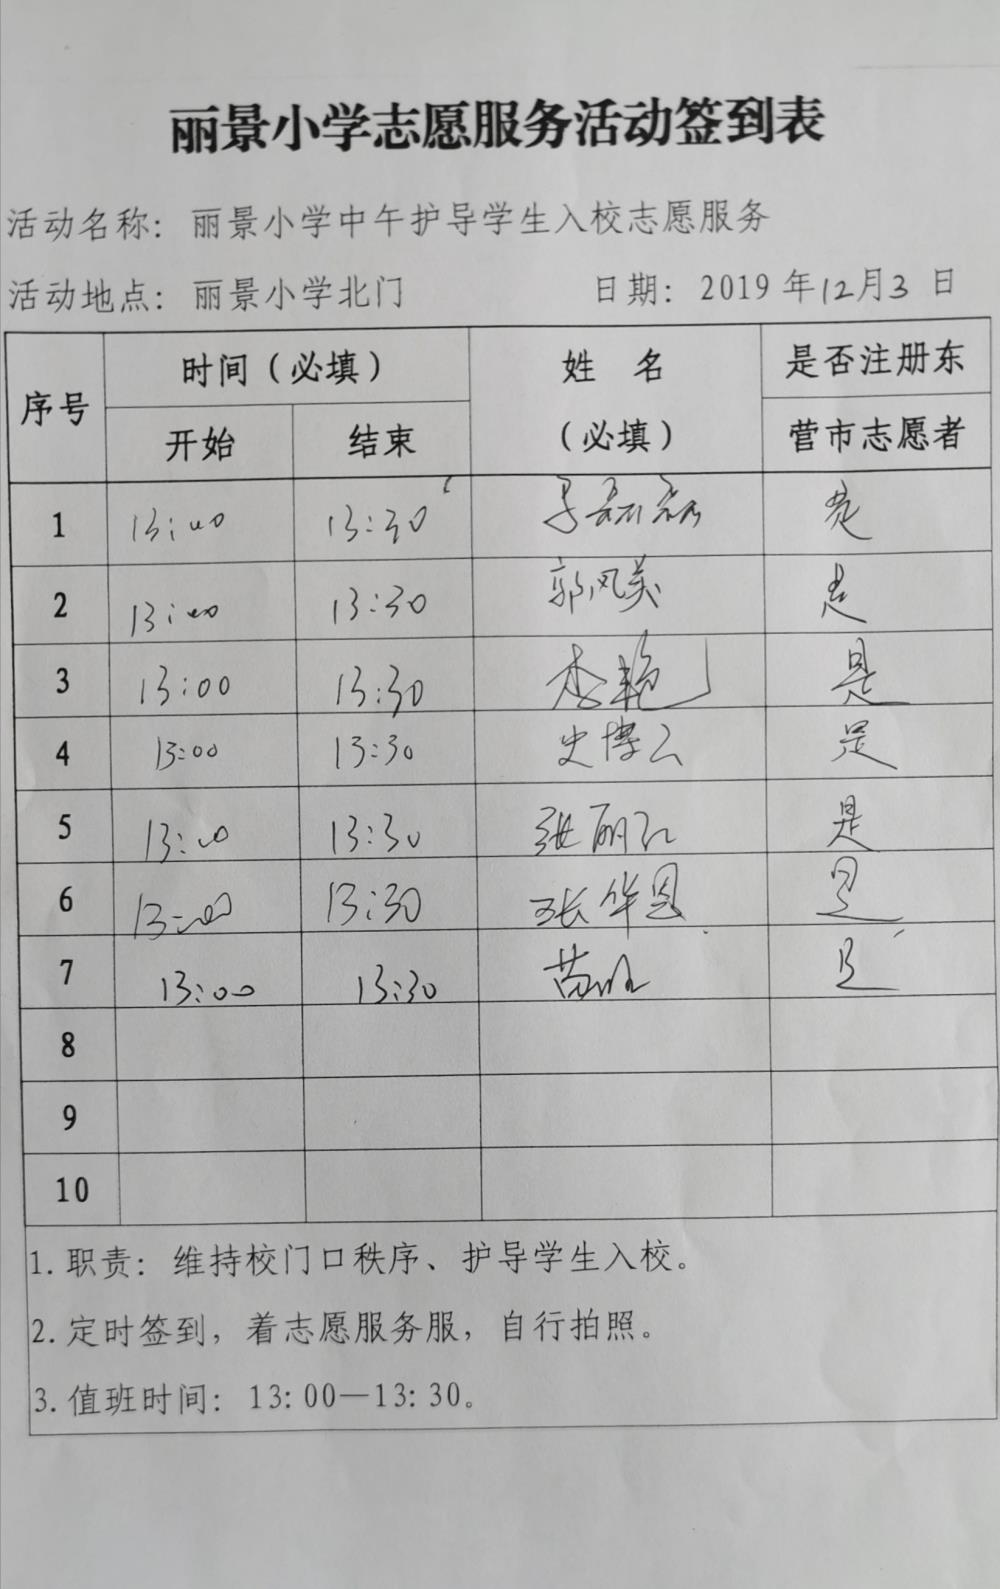 丽景小学志愿服务活动签到表
活动名称：丽景小学中午护导学生入校志愿服务
活动地点：丽景小学北门 日期：2019年12月3日
序号 时间（必填） 姓 名（必填） 是否注册东营市志愿者
开始 结束
1 13:00 13:30 是
2 13:00 13:30 郭风美 是
3 13:00 13:30 李艳 是
4 13:00 13:30 史博云 是
5 13:00 13:30 张丽红 是
6 13:00 13:30 张华恩 是
7 13:00 13:30 苗 是
8
9
10
1.职责：维持校门口秩序、护导学生入校。
2.定时签到，着志愿服务服，自行拍照。
3.值班时间：13:00—13:30。